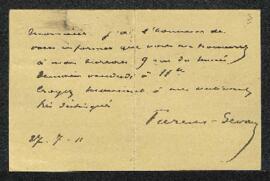 Monsieur j'ai l'honneur de
vous informer que vous me trouverez
à mon bureau 9 rue du Musée
demain vendredi à 11h
Croyez Monsieur à mes
très distingués
Fierens-Gevaert
27-7-11